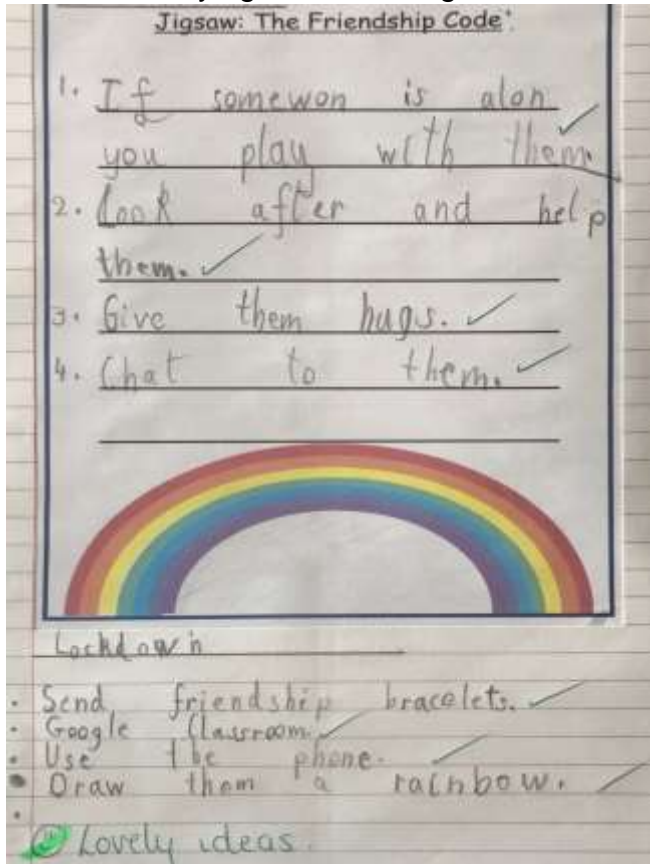 Jigsaw: The Friendship Code
1. If somewon is alon
you play with them.
2. Look after and help
them.
3. Give them hugs.
4. Chat to them.
Lockdown
Send friendship bracelets.
Google Classroom.
Use the phone.
Draw them a rainbow.
Lovely ideas.